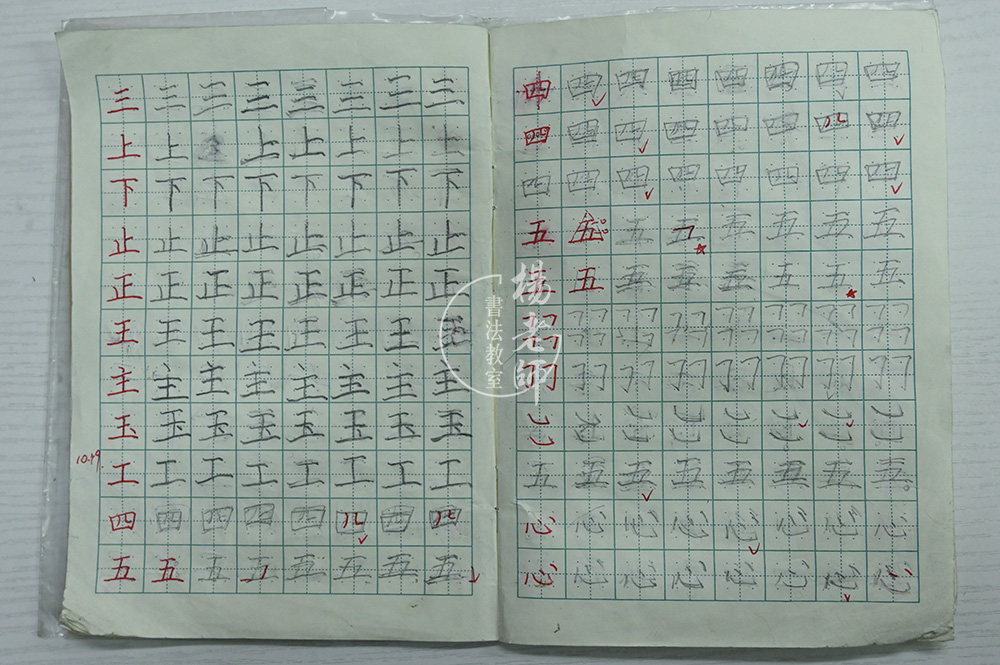 三三三三三三三三
上上上上上上上
下下下下下下下下
止止止止止止止止
正正正正正正正正
王王王王王王王王
主主主主主主主主
玉玉玉玉玉玉玉玉
10.19.
工工工工工工工工
四四四四四四四四
五五五五五五五五
四四四四四四四四
四四四四四四四四
四四四四四四四四
五五五五五五五五
五五五五五五五五
五五五五五五五五
心心心心心心心心
心心心心心心心心
楊老師
書法教室